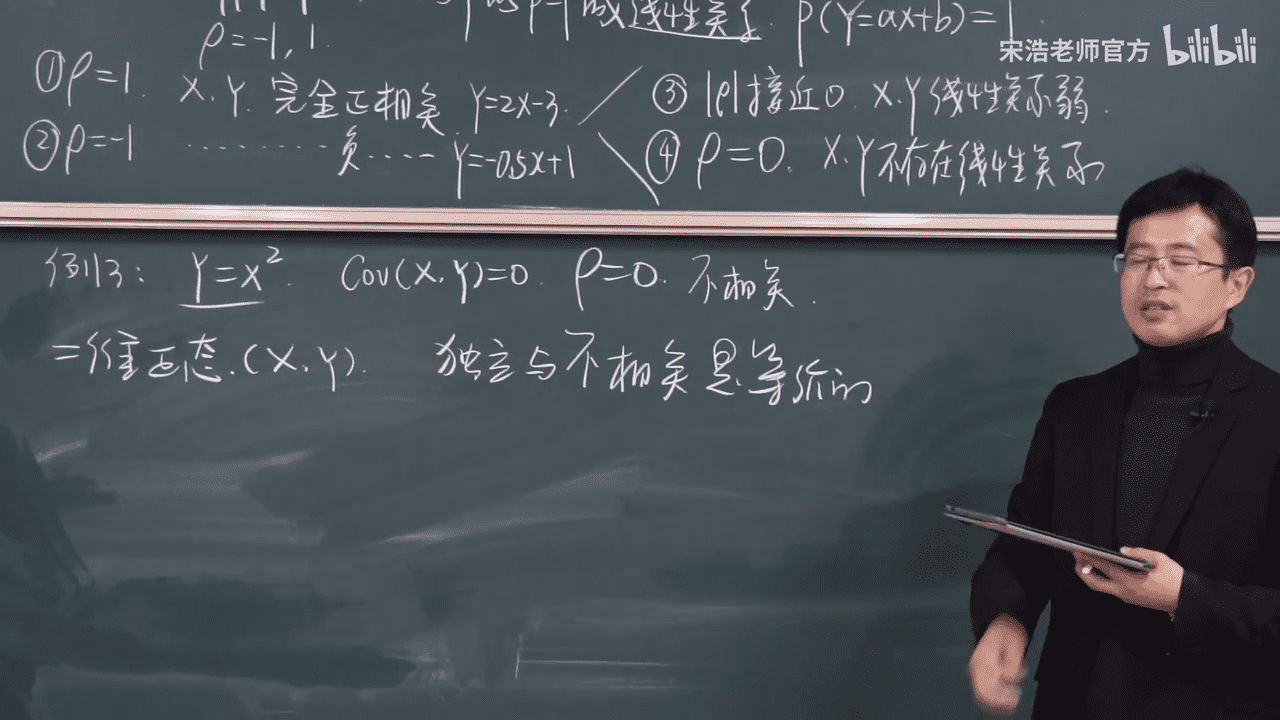 成线性关系 P(Y=ax+b)=1
ρ=-1, 1.
宋浩老师官方 bilibili
①ρ=1. X.Y. 完全正相关. Y=2X-3.
②ρ=-1 ········负···· Y=-0.5X+1
③ |ρ|接近0. X.Y线性关系弱.
④ ρ=0. X.Y不存在线性关系
例13: Y=X². Cov(X.Y)=0. ρ=0. 不相关.
二维正态.(X.Y). 独立与不相关是等价的